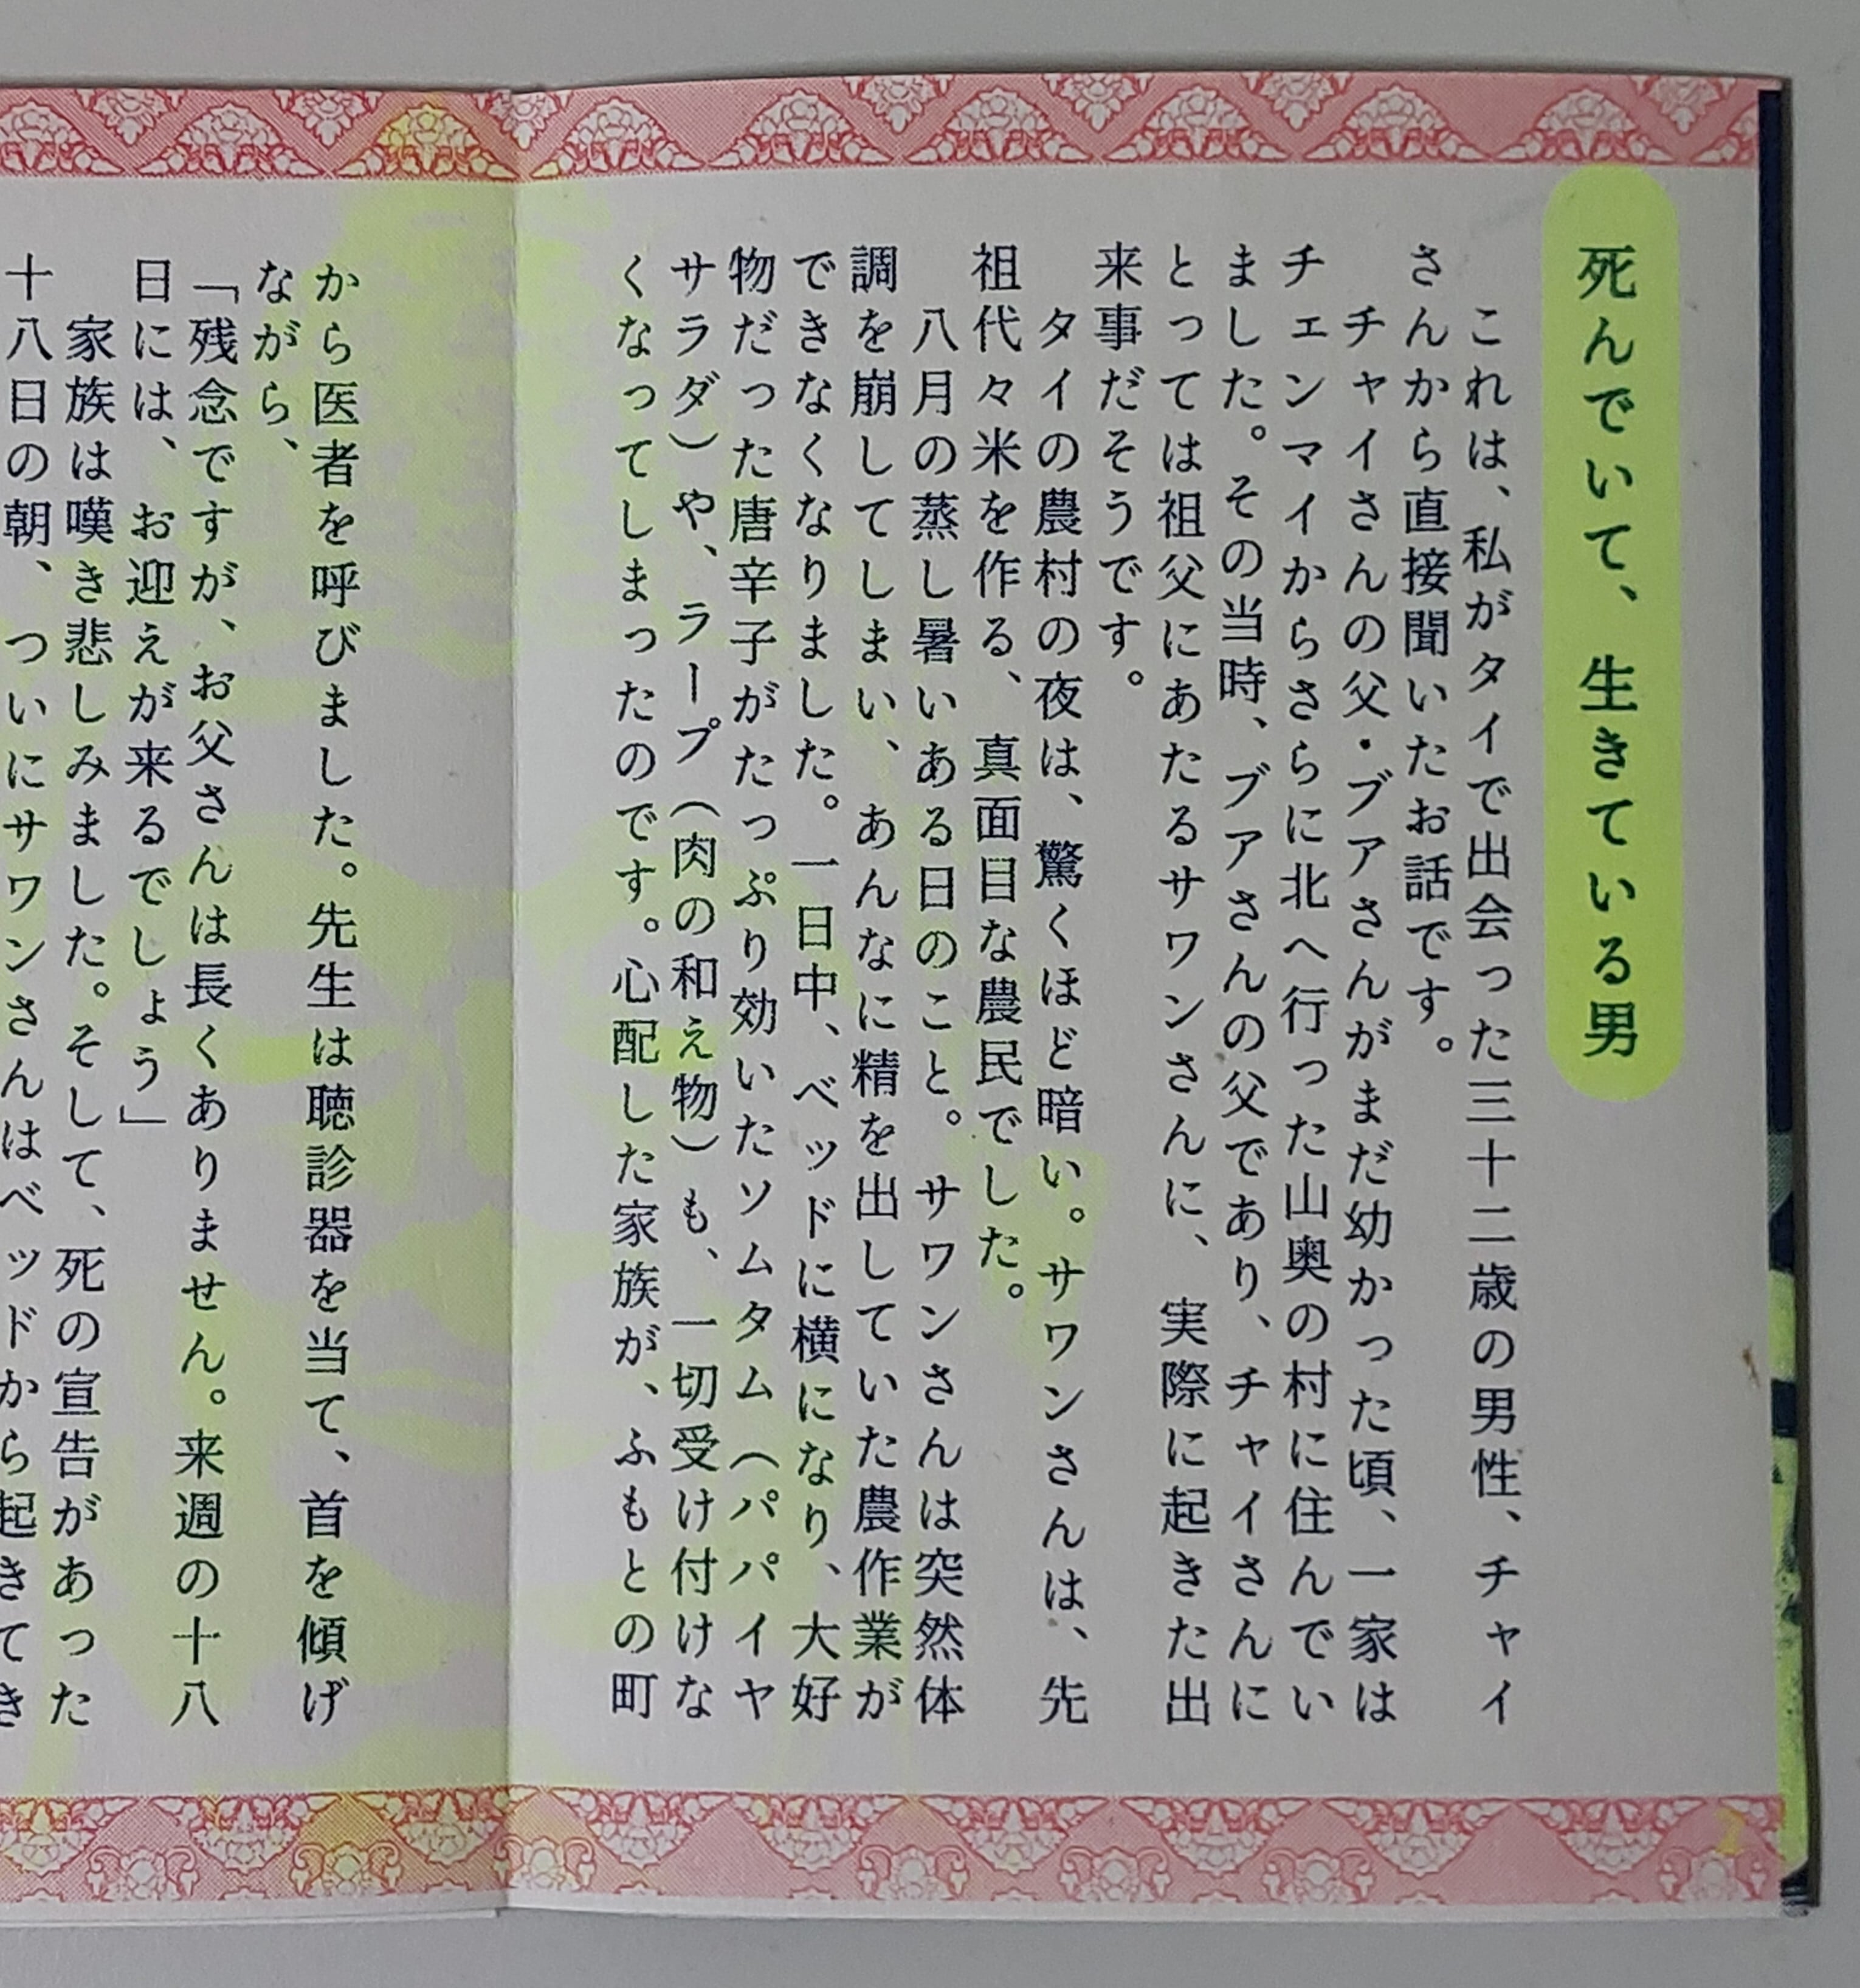 死んでいて、生きている男
これは、私がタイで出会った三十二歳の男性、チャイ
さんから直接聞いたお話です。
チャイさんの父・ブアさんがまだ幼かった頃、一家は
チェンマイからさらに北へ行った山奥の村に住んでい
ました。その当時、ブアさんの父であり、チャイさんに
とっては祖父にあたるサワンさんに、実際に起きた出
来事だそうです。
タイの農村の夜は、驚くほど暗い。サワンさんは、先
祖代々米を作る、真面目な農民でした。
八月の蒸し暑いある日のこと。サワンさんは突然体
調を崩してしまい、あんなに精を出していた農作業が
できなくなりました。一日中、ベッドに横になり、大好
物だった唐辛子がたっぷり効いたソムタム（パパイヤ
サラダ）や、ラープ（肉の和え物）も、一切受け付けな
くなってしまったのです。心配した家族が、ふもとの町
から医者を呼びました。先生は聴診器を当て、首を傾げ
ながら、
「残念ですが、お父さんは長くありません。来週の十八
日には、お迎えが来るでしょう」
家族は嘆き悲しみました。そして、死の宣告があった
十八日の朝、ついにサワンさんはベッドから起きてき